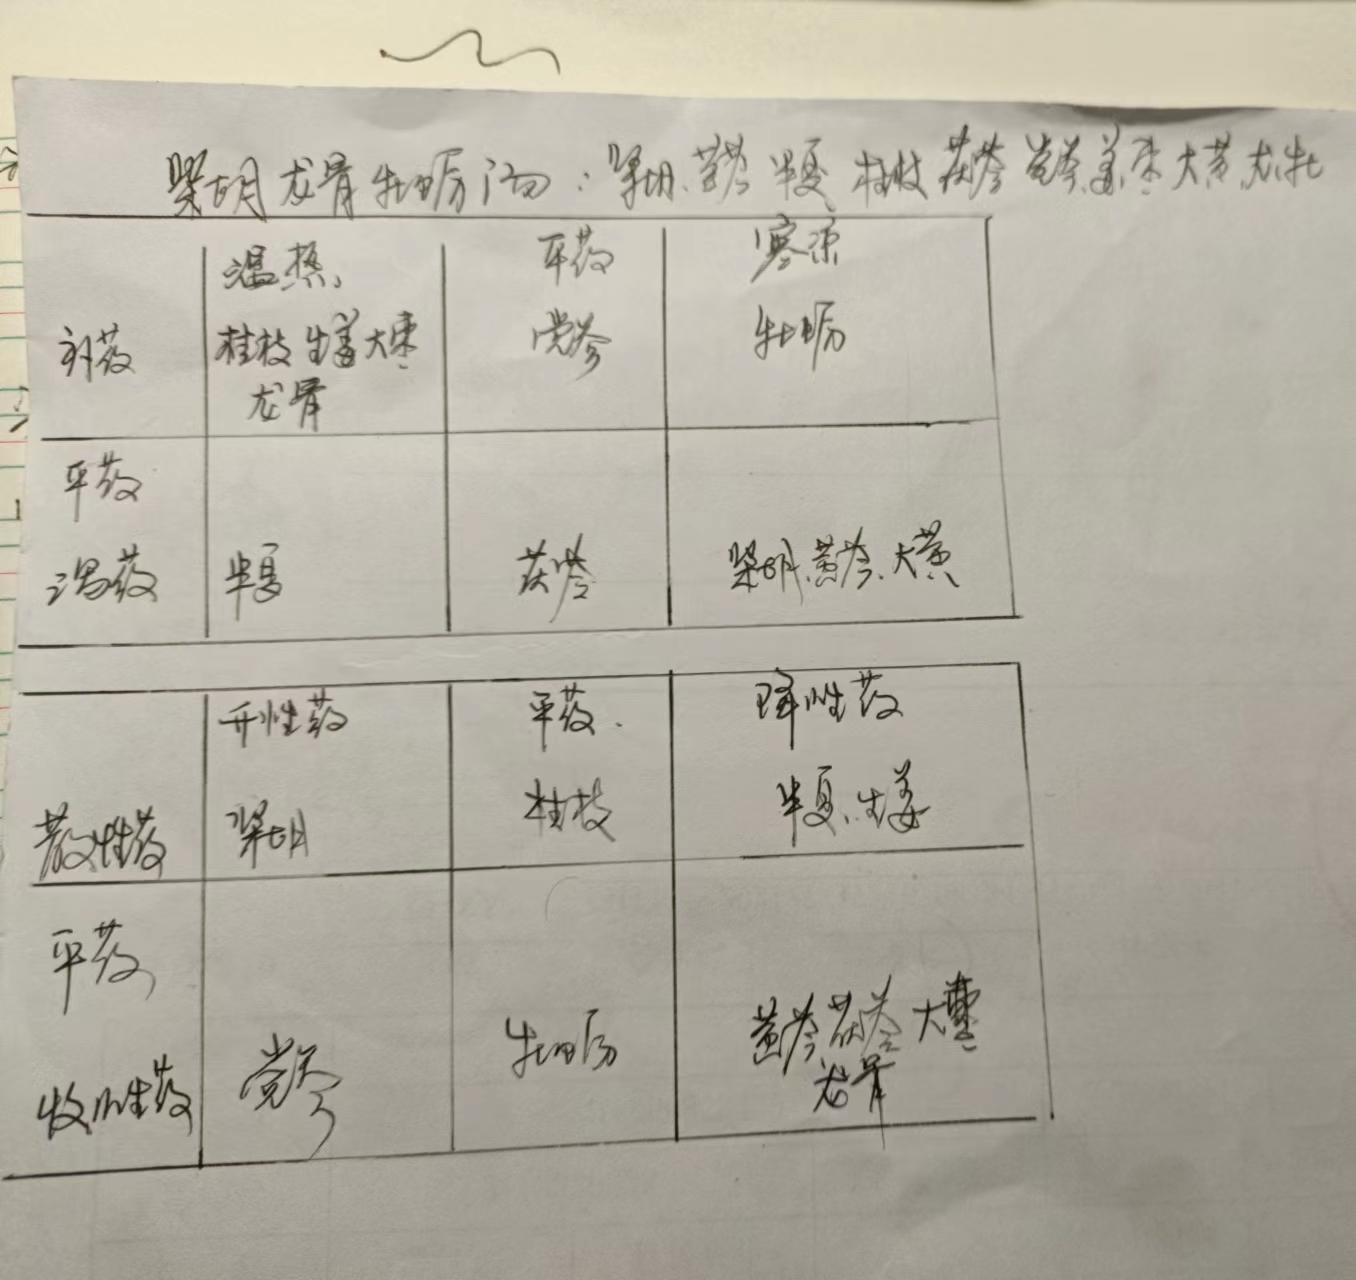 柴胡龙骨牡蛎汤：柴胡、黄芩 半夏 桂枝 茯苓 党参、姜、枣 大黄、龙、牡
温热、 平药 寒凉
补药 桂枝 生姜 大枣 党参 牡蛎
龙骨
平药
泻药 半夏 茯苓 柴胡、黄芩、大黄
升性药 平药. 降性药
散性药 柴胡 桂枝 半夏、生姜
平药
收性药 党参 牡蛎 黄芩 茯苓 大枣
龙骨